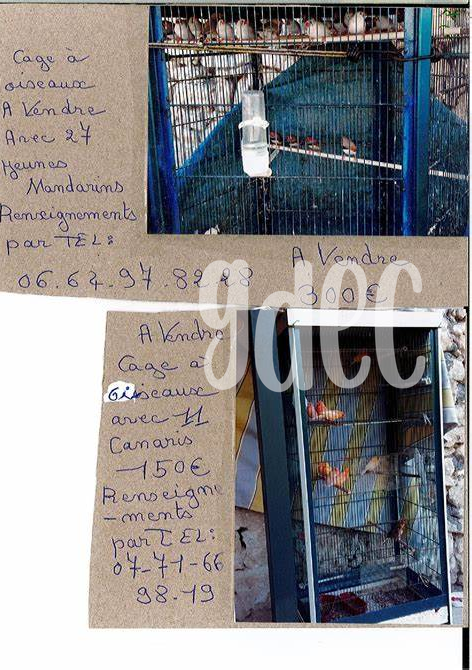 Cage à
oiseaux
A Vendre
Avec 27
jeunes
Mandarins
Renseignements
par TEL:
06.64.97.8228
A Vendre
300€
gdec
A Vendre
Cage à
Oiseaux
avec 11
Canaris
150€
Renseigne
-ments
par TEL:
07-71-66
98.19